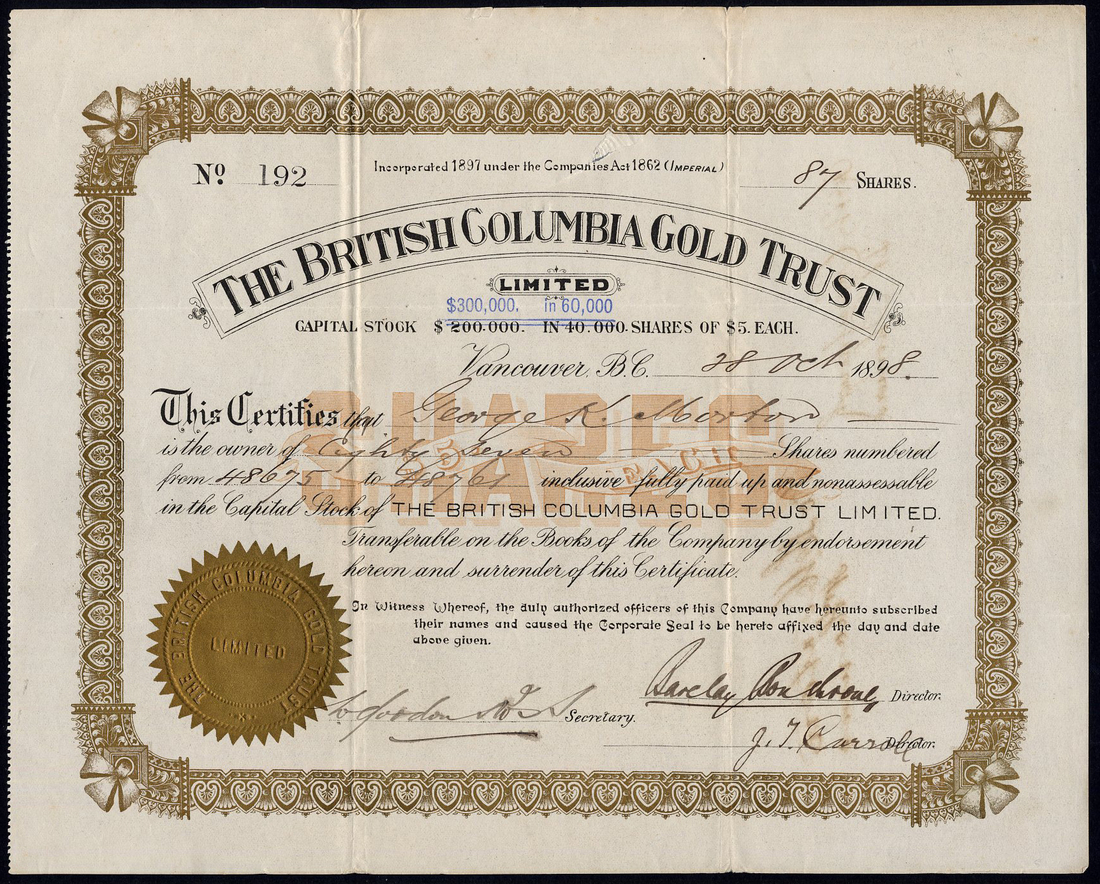 No 192
Incorporated 1897 under the Companies Act 1862 (IMPERIAL)
87 SHARES.
THE BRITISH COLUMBIA GOLD TRUST
LIMITED
$300,000. in 60,000
CAPITAL STOCK $200.000. IN 40.000. SHARES OF $5. EACH.
Vancouver, B.C. 28 Oct 1898.
This Certifies that George K. Morton
is the owner of Eighty Seven Shares numbered
from 48675 to 48761 inclusive fully paid up and nonassessable
in the Capital Stock of THE BRITISH COLUMBIA GOLD TRUST LIMITED.
Transferable on the Books of the Company by endorsement
hereon and surrender of this Certificate.
In Witness Whereof, the duly authorized officers of this Company have hereunto subscribed
their names and caused the Corporate Seal to be hereto affixed the day and date
above given.
SHARES
$5 EACH
SHARES
THE BRITISH COLUMBIA GOLD TRUST
LIMITED
Barclay Director.
Gordon Secretary.
J. T. Director.